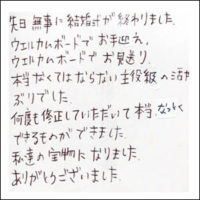 先日無事に結婚式が終わりました。
ウェルカムボードでお出迎え。
ウェルカムボードでお見送り。
本当なくてはならない主役級の活や
ぶりでした。
何度も修正していただいて本当、なっとく
できるものができました。
私達の宝物になりました。
ありがとうございました。